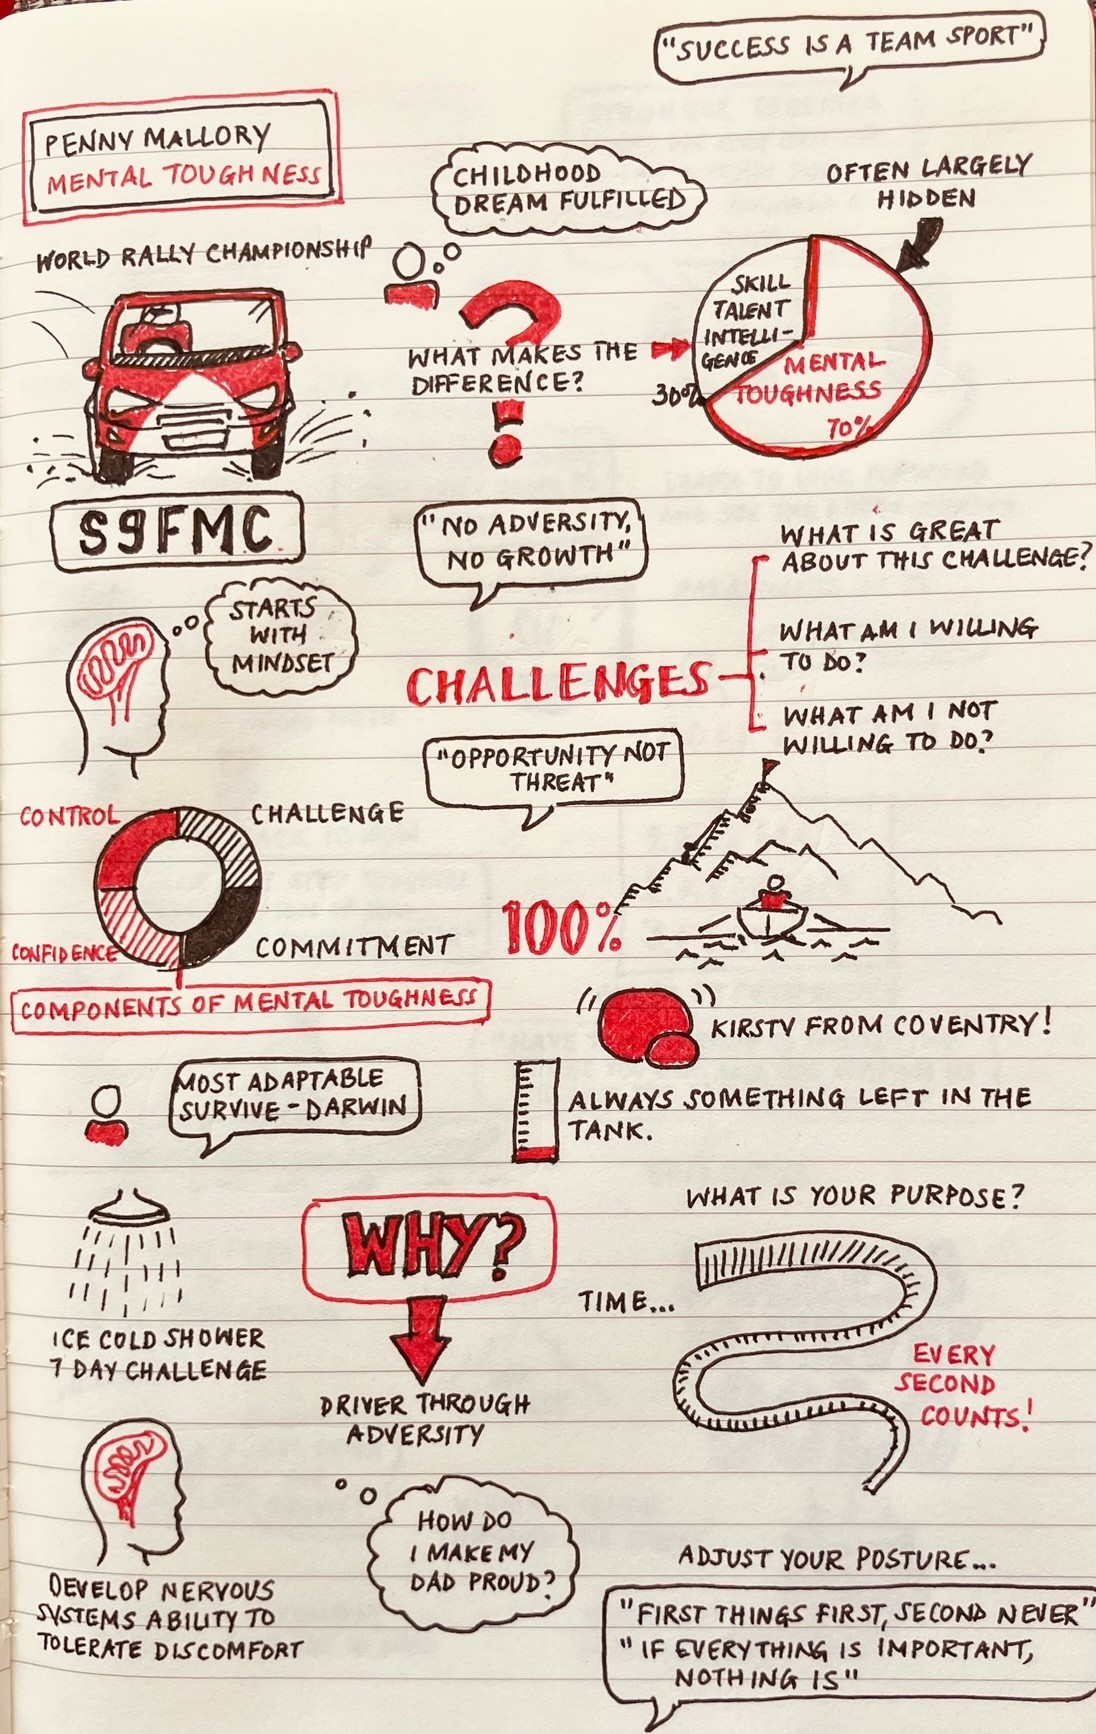 "SUCCESS IS A TEAM SPORT"
PENNY MALLORY
MENTAL TOUGHNESS
CHILDHOOD
DREAM FULFILLED
OFTEN LARGELY
HIDDEN
WORLD RALLY CHAMPIONSHIP
SKILL
TALENT
INTELLI-
GENCE
WHAT MAKES THE
DIFFERENCE?
30%
MENTAL
TOUGHNESS
70%
S9FMC
"NO ADVERSITY,
NO GROWTH"
WHAT IS GREAT
ABOUT THIS CHALLENGE?
STARTS
WITH
MINDSET
WHAT AM I WILLING
TO DO?
CHALLENGES
WHAT AM I NOT
WILLING TO DO?
"OPPORTUNITY NOT
THREAT"
CONTROL
CHALLENGE
CONFIDENCE
COMMITMENT
COMPONENTS OF MENTAL TOUGHNESS
100%
KIRSTY FROM COVENTRY!
MOST ADAPTABLE
SURVIVE - DARWIN
ALWAYS SOMETHING LEFT IN THE
TANK.
WHAT IS YOUR PURPOSE?
WHY?
TIME...
ICE COLD SHOWER
7 DAY CHALLENGE
EVERY
SECOND
COUNTS!
DRIVER THROUGH
ADVERSITY
HOW DO
I MAKE MY
DAD PROUD?
DEVELOP NERVOUS
SYSTEMS ABILITY TO
TOLERATE DISCOMFORT
ADJUST YOUR POSTURE...
"FIRST THINGS FIRST, SECOND NEVER"
"IF EVERYTHING IS IMPORTANT,
NOTHING IS"